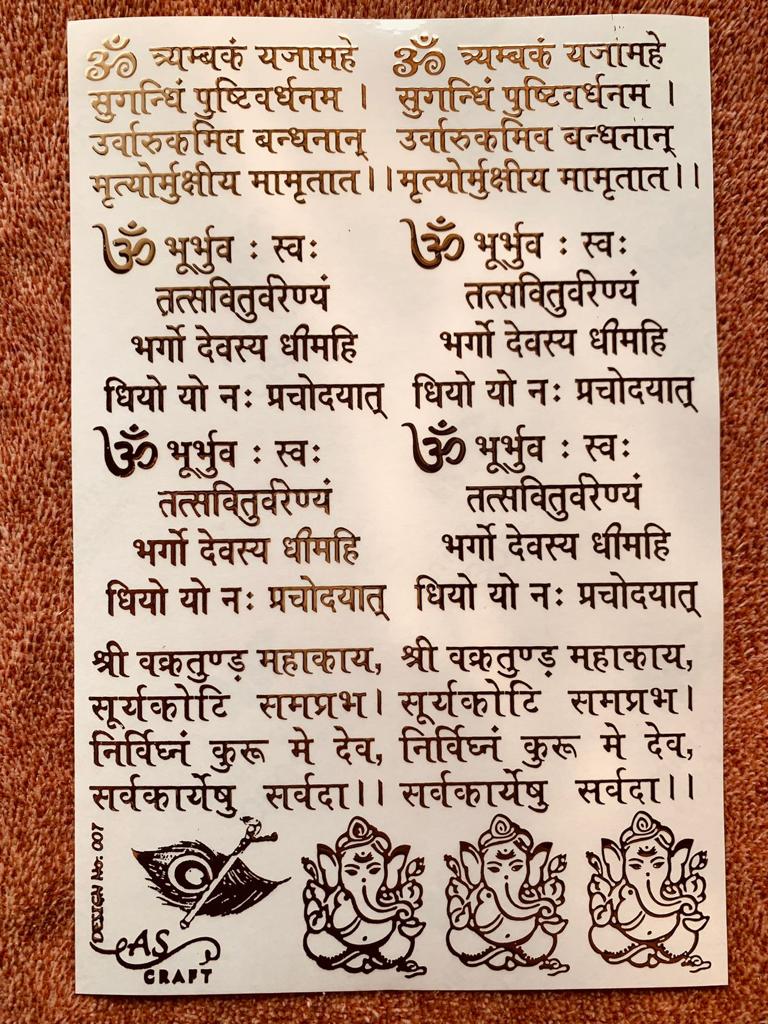 ॐ त्र्यम्बकं यजामहे
सुगन्धिं पुष्टिवर्धनम ।
उर्वारुकमिव बन्धनान्
मृत्योर्मुक्षीय मामृतात ।।
ॐ त्र्यम्बकं यजामहे
सुगन्धिं पुष्टिवर्धनम ।
उर्वारुकमिव बन्धनान्
मृत्योर्मुक्षीय मामृतात ।।
ॐ भूर्भुव : स्वः
तत्सवितुर्वरेण्यं
भर्गो देवस्य धीमहि
धियो यो नः प्रचोदयात्
ॐ भूर्भुव : स्वः
तत्सवितुर्वरेण्यं
भर्गो देवस्य धीमहि
धियो यो नः प्रचोदयात्
ॐ भूर्भुव : स्वः
तत्सवितुर्वरेण्यं
भर्गो देवस्य धीमहि
धियो यो नः प्रचोदयात्
ॐ भूर्भुव : स्वः
तत्सवितुर्वरेण्यं
भर्गो देवस्य धीमहि
धियो यो नः प्रचोदयात्
श्री वक्रतुण्ड़ महाकाय,
सूर्यकोटि समप्रभ।
निर्विघ्नं कुरू मे देव,
सर्वकार्येषु सर्वदा।।
श्री वक्रतुण्ड़ महाकाय,
सूर्यकोटि समप्रभ।
निर्विघ्नं कुरू मे देव,
सर्वकार्येषु सर्वदा।।
DESIGN No: 007
AS
CRAFT